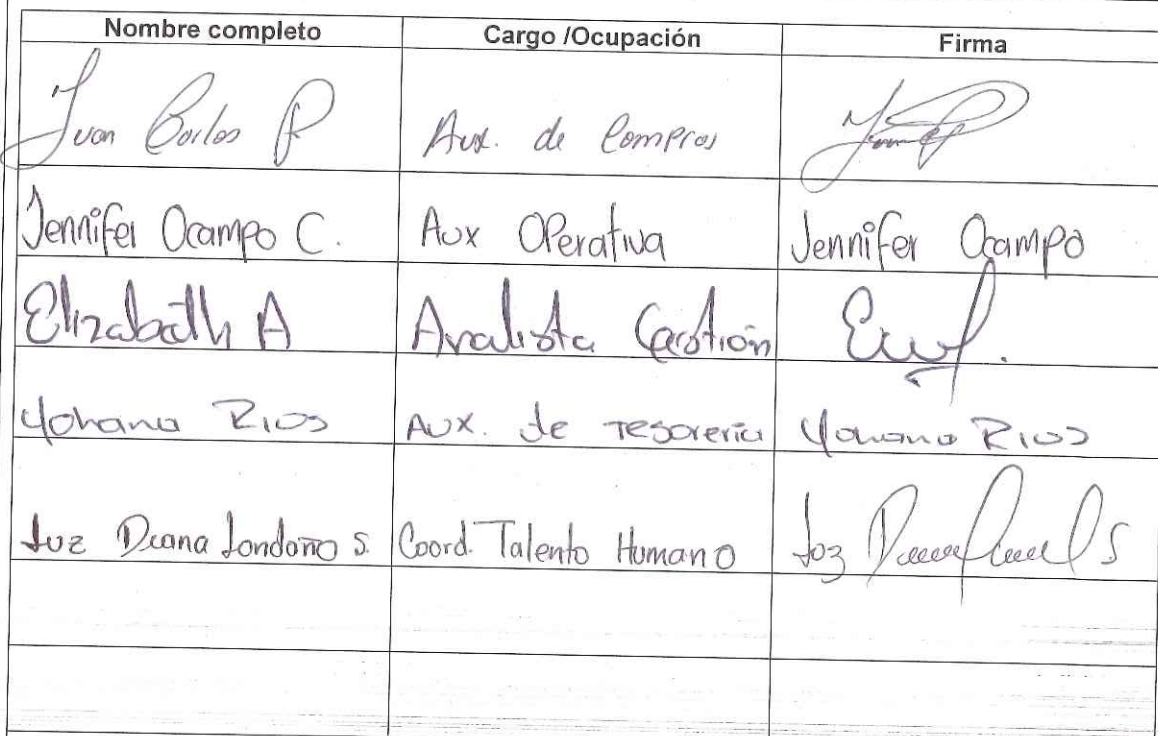 Nombre completo Cargo /Ocupación Firma
Juan Carlos P Aux. de Compras
Jennifer Ocampo C. Aux Operativa Jennifer Ocampo
Elizabeth A Analista Gestión
Yohana Rios Aux. de Tesoreria Yohana Rios
Luz Diana Londoño S. Coord. Talento Humano Luz